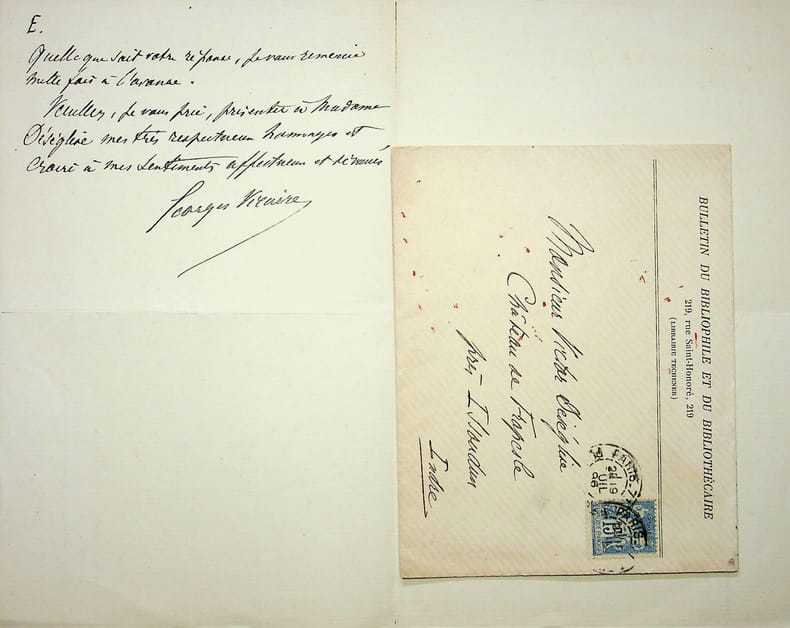 E.
Quelle que soit votre réponse, je vous remercie
mille fois à l'avance.
Veuillez, je vous prie, présenter à Madame
Déséglise mes très respectueux hommages et
croire à mes sentiments affectueux et dévoués
Georges Vicaire
BULLETIN DU BIBLIOPHILE ET DU BIBLIOTHÉCAIRE
219, rue Saint-Honoré, 219
(LIBRAIRIE TECHENER)
Monsieur Victor Déséglise
Château de Frapesle
près Issoudun
Indre
PARIS
24
JUIL
96
PARIS
15